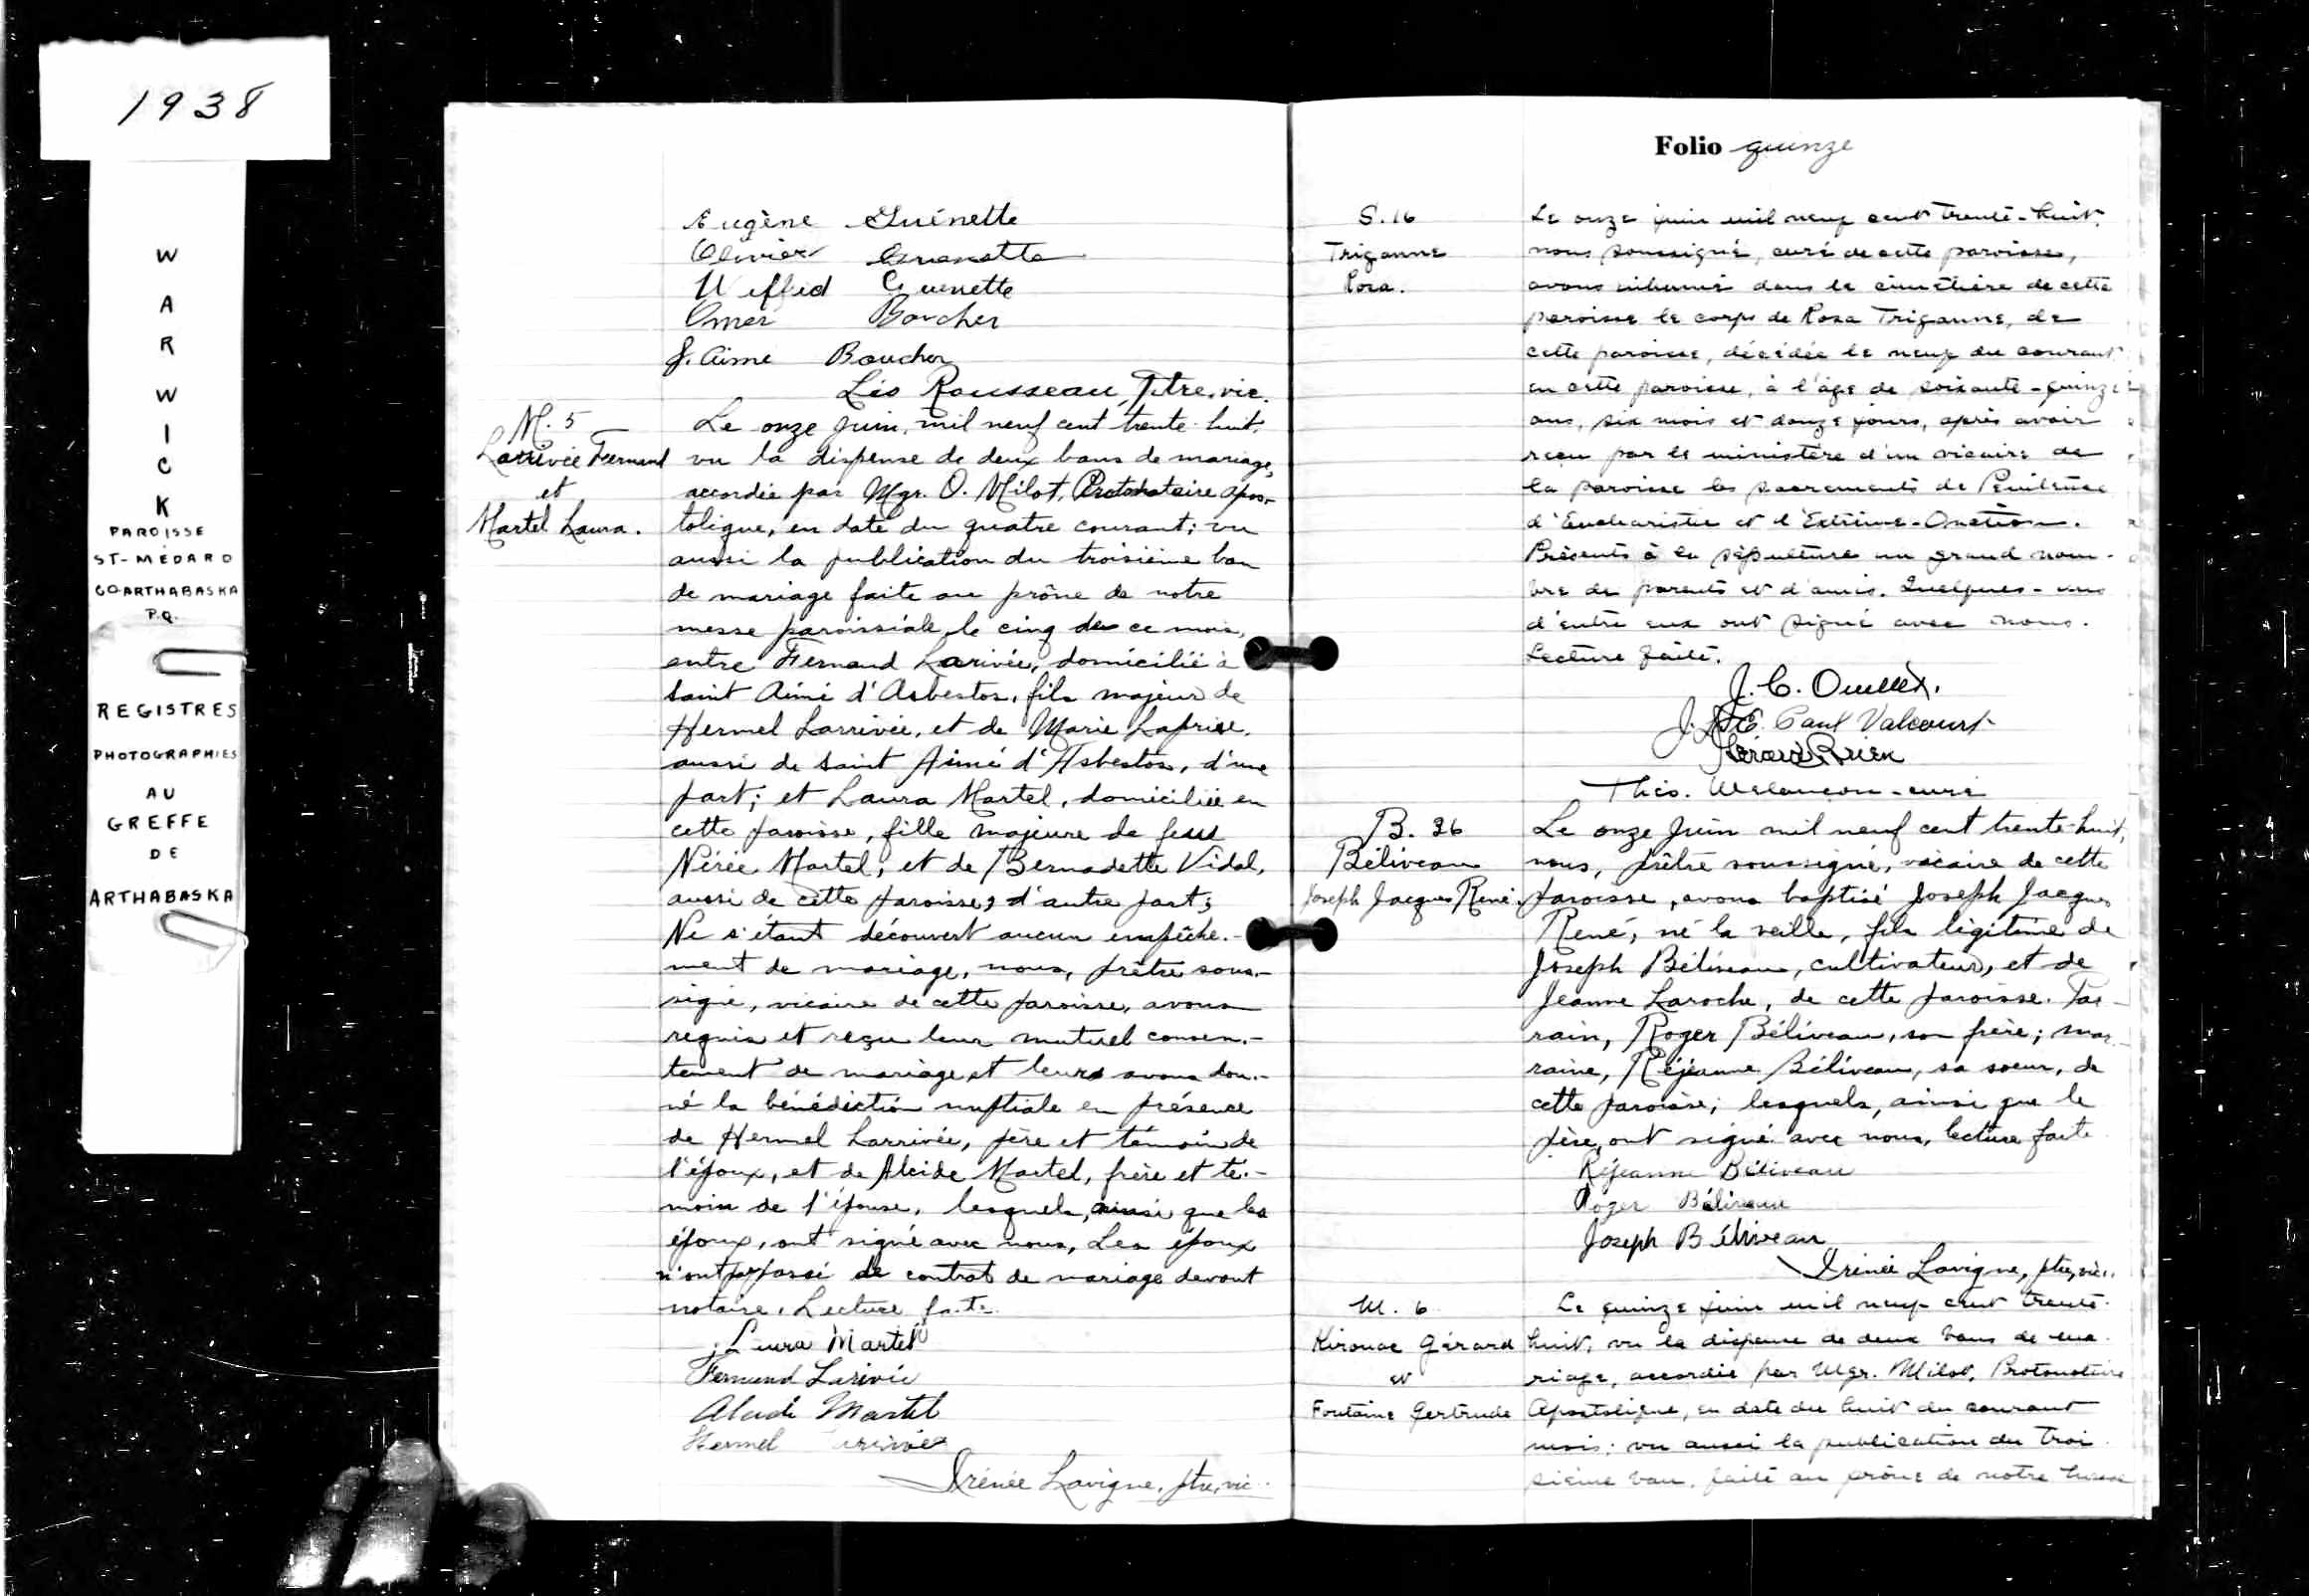 1938
WARWICK
PAROISSE
ST-MÉDARD
CO ARTHABASKA
P.Q.
REGISTRES
PHOTOGRAPHIES
AU
GREFFE
DE
ARTHABASKA
Eugène Guénette
Olivier Guenette
Wilffed Guenette
Omer Boucher
J. Aimé Boucher
Léo Rousseau, Ptre, vic.
M. 5
Larrivée Fernand
et
Martel Laura.
Le onze juin, mil neuf cent trente-huit,
vu la dispense de deux bans de mariage,
accordée par Mgr. O. Milot, Protonotaire apos-
tolique, en date du quatre courant; vu
aussi la publication du troisième ban
de mariage faite au prône de notre
messe paroissiale le cinq de ce mois,
entre Fernand Larivée, domicilié à
Saint Aimé d'Asbestos, fils majeur de
Hermel Larrivée, et de Marie Laprise,
aussi de Saint Aimé d'Asbestos, d'une
part; et Laura Martel, domiciliée en
cette paroisse, fille majeure de feu
Nérée Martel, et de Bernadette Vidal,
aussi de cette paroisse, d'autre part;
Ne s'étant découvert aucun empêche-
ment de mariage, nous, prêtre sous-
signé, vicaire de cette paroisse, avons
requis et reçu leur mutuel consen-
tement de mariage et leurs avons don-
né la bénédiction nuptiale en présence
de Hermel Larrivée, père et témoin de
l'époux, et de Alcide Martel, frère et té-
moin de l'épouse, lesquels, ainsi que les
époux, ont signé avec nous, Les époux
n'ont pas passé de contrat de mariage devant
notaire. Lecture faite.
Laura Martel
Fernand Larivée
Alcide Martel
Hermel
Irénée Lavigne, ptre, vic.
Folio quinze
S. 16
Triganne
Rosa.
Le onze juin mil neuf cent trente-huit,
nous soussigné, curé de cette paroisse,
avons inhumé dans le cimetière de cette
paroisse le corps de Rosa Triganne, de
cette paroisse, décédée le neuf du courant
en cette paroisse, à l'âge de soixante-quinze
ans, six mois et douze jours, après avoir
reçu par le ministère d'un vicaire de
la paroisse les sacrements de Pénitence
d'Eucharistie et d'Extrême-Onction.
Présents à la sépulture un grand nom-
bre de parents et d'amis. Quelques-uns
d'entre eux ont signé avec nous.
Lecture faite.
J. C. Ouellet.
Paul Valcourt
Théo. Melançon - curé
B. 26
Béliveau
Joseph Jacques René.
Le onze juin mil neuf cent trente-huit,
nous, prêtre soussigné, vicaire de cette
paroisse, avons baptisé Joseph Jacques
René, né la veille, fils légitime de
Joseph Béliveau, cultivateur, et de
Jeanne Laroche, de cette paroisse. Par-
rain, Roger Béliveau, son frère; mar-
raine, Réjeanne Béliveau, sa soeur, de
cette paroisse; lesquels, ainsi que le
père, ont signé avec nous, lecture faite
Réjeanne Béliveau
Roger Béliveau
Joseph Béliveau
Irénée Lavigne, ptre, vic.
M. 6
Kirouac Gérard
et
Fontaine Gertrude
Le quinze juin mil neuf cent trente-
huit, vu la dispense de deux bans de ma-
riage, accordée par Mgr. Milot, Protonotaire
Apostolique, en date du huit du courant
mois; vu aussi la publication du troi-
sième ban, faite au prône de notre messe